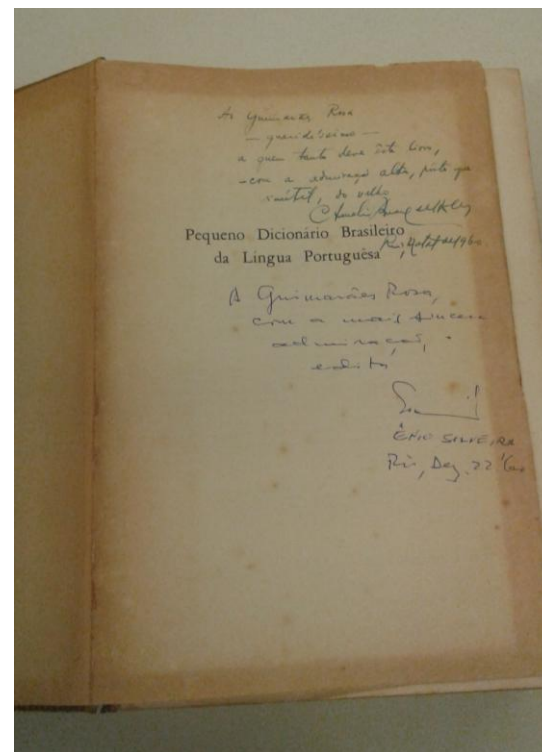 Ao Guimarães Rosa
— queridíssimo —
a quem tanto deve êste livro,
— com a admiração alta, posto que
inútil, do velho
Aurélio Buarque de Holanda
Pequeno Dicionário Brasileiro
Rio, Natal de 1960
da Língua Portuguêsa
A Guimarães Rosa,
com a mais sincera
admiração,
ÊNIO SILVEIRA
Rio, Dez. 22